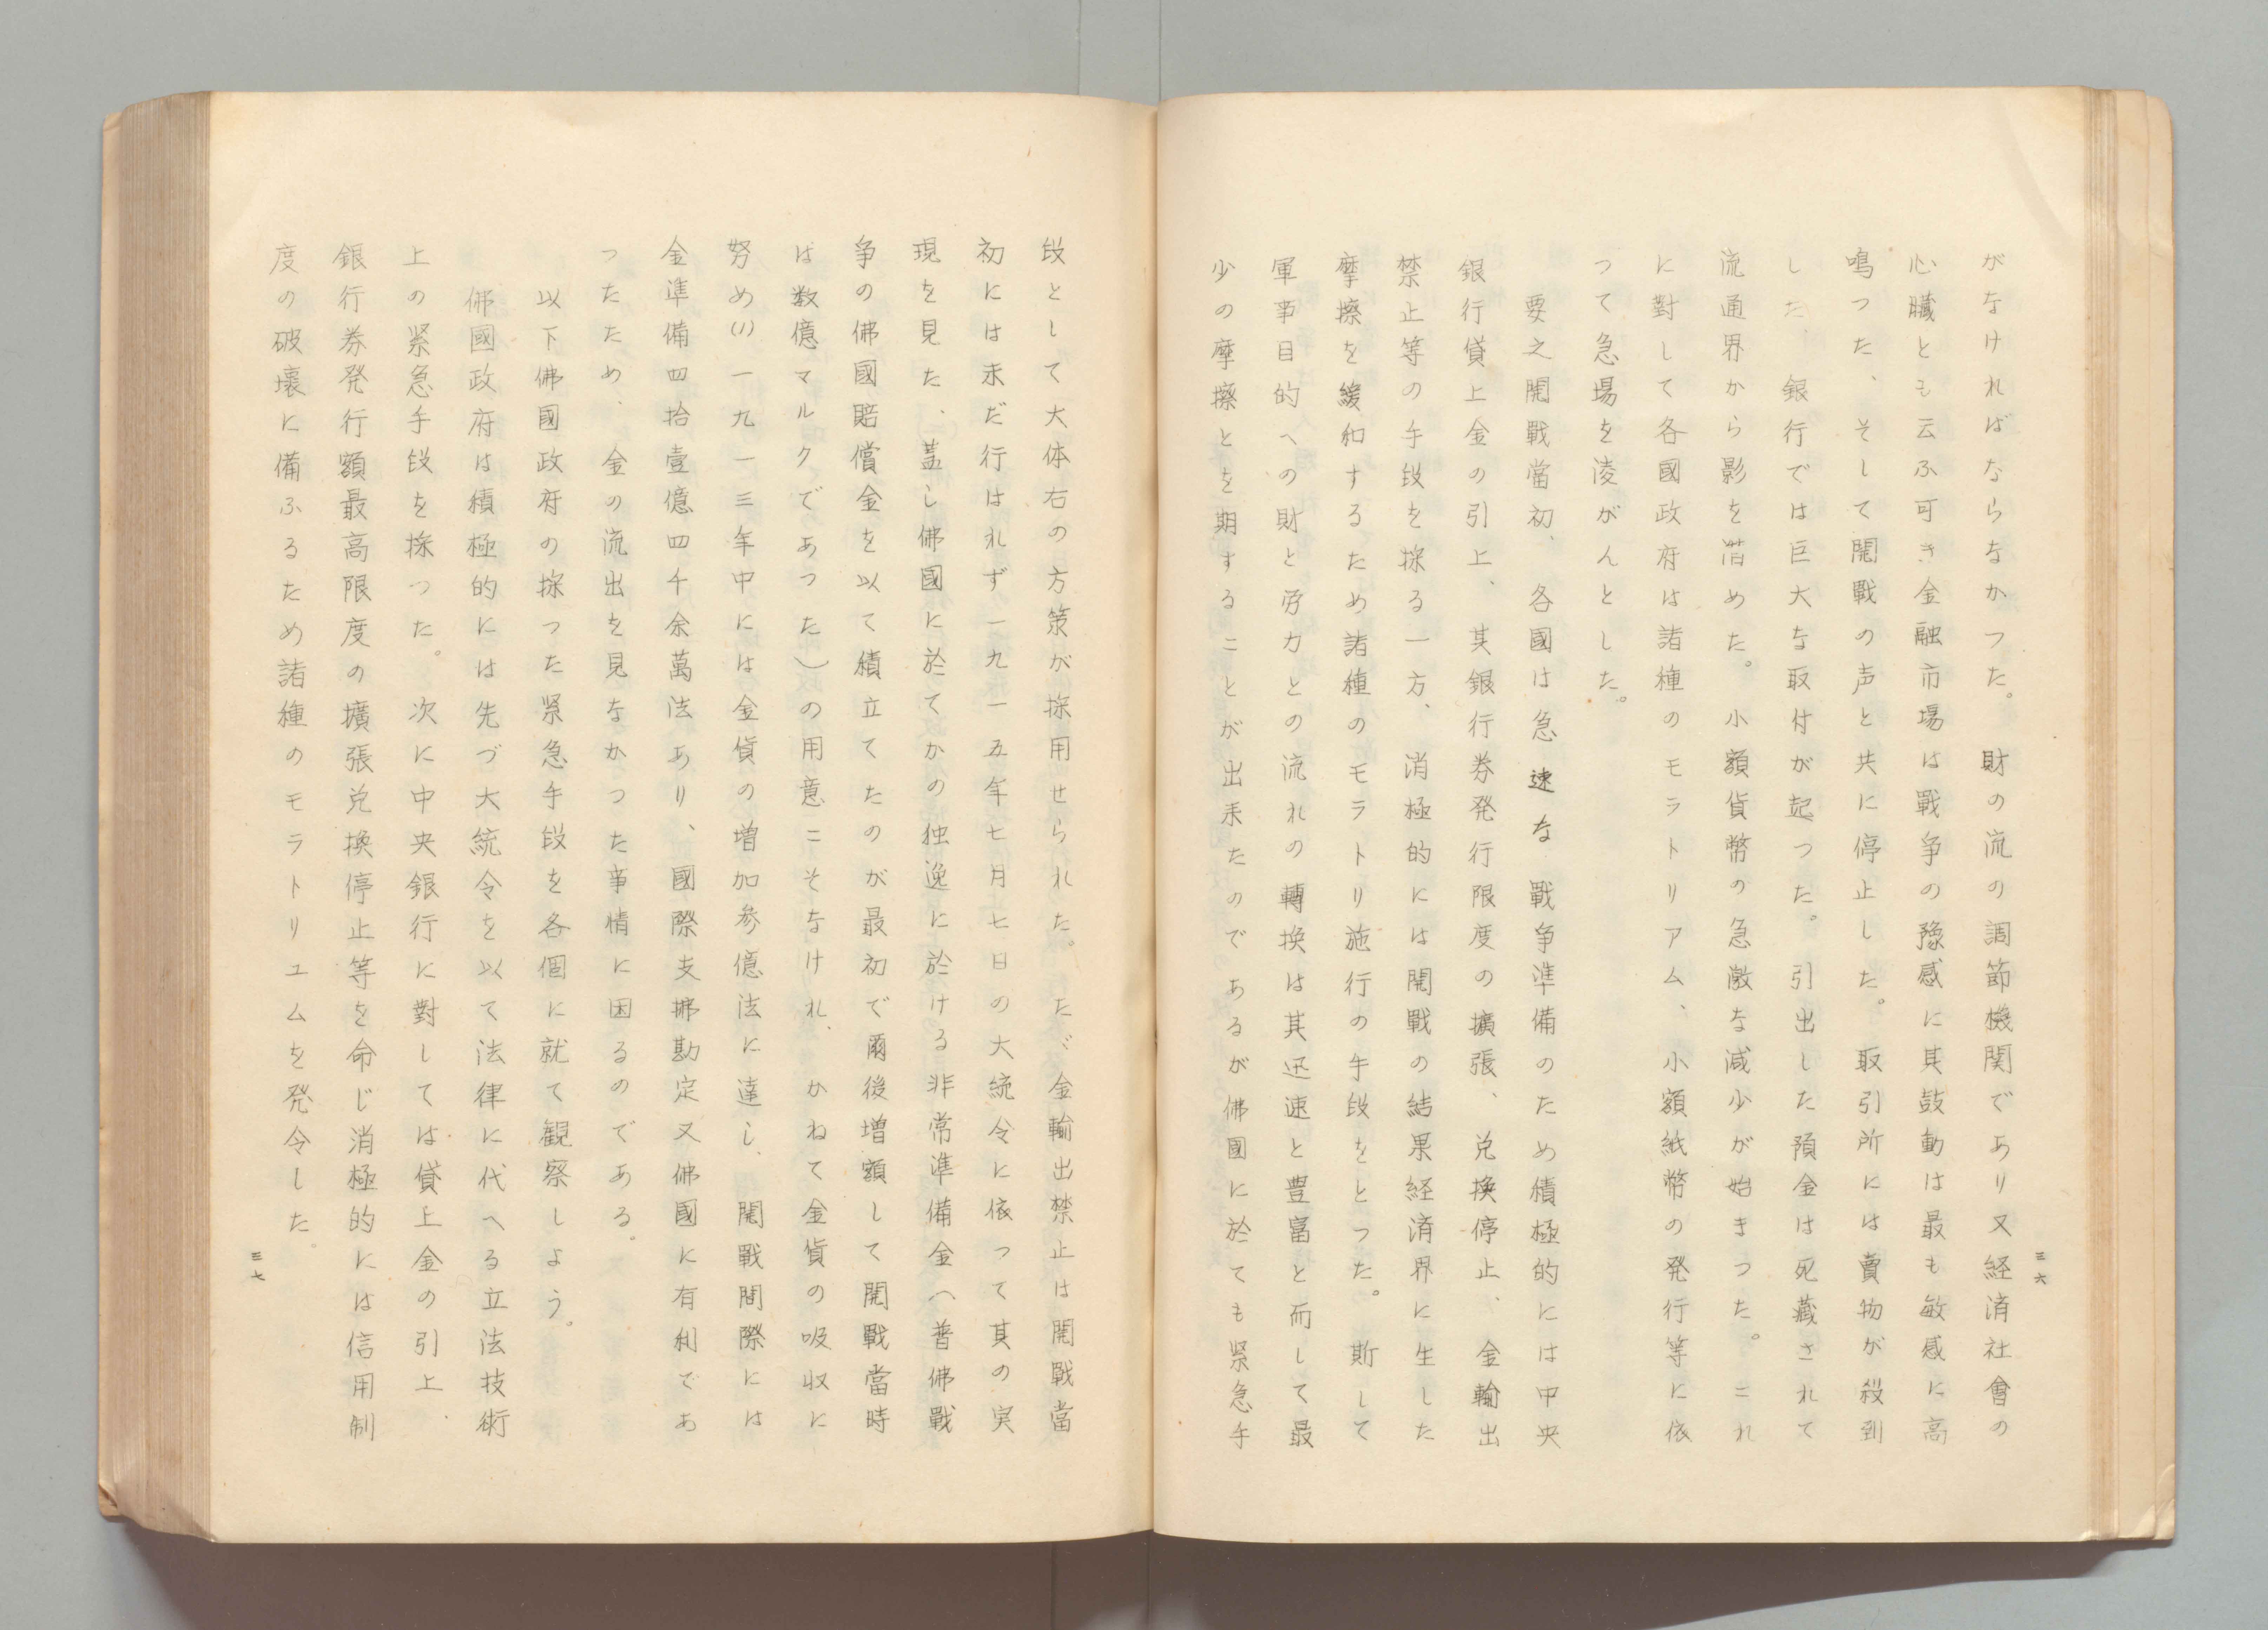 がなければならなかつた。財の流の調節機関であり又経済社會の
心臓とも云ふ可き金融市場は戰争の豫感に其鼓動は最も敏感に高
鳴つた、そして開戰の声と共に停止した。取引所には賣物が殺到
した、銀行では巨大な取付が起つた。引出した預金は死藏されて
流通界から影を潜めた。小額貨幣の急激な減少が始まつた。これ
に對して各國政府は諸種のモラトリアム、小額紙幣の発行等に依
つて急場を凌がんとした。
要之開戰當初、各國は急速な戰争準備のため積極的には中央
銀行貸上金の引上、其銀行券発行限度の擴張、兌換停止、金輸出
禁止等の手段を採る一方、消極的には開戰の結果経済界に生した
摩擦を緩和するため諸種のモラトリ施行の手段をとつた。斯して
軍事目的への財と労力との流れの轉換は其迅速と豊富と而して最
少の摩擦とを期することが出来たのであるが佛國に於ても緊急手
三六
段として大体右の方策が採用せられた。たゞ金輸出禁止は開戰當
初には未だ行はれず一九一五年七月七日の大統令に依つて其の実
現を見た、蓋し佛國に於てかの独逸に於ける非常準備金(普佛戰
争の佛國賠償金を以て積立てたのが最初で爾後増額して開戰當時
は数億マルクであつた)の用意こそなけれ、かねて金貨の吸収に
努め(1)一九一三年中には金貨の増加参億法に達し、開戰間際には
金準備四拾壹億四千余萬法あり、國際支拂勘定又佛國に有利であ
つたため、金の流出を見なかつた事情に因るのである。
以下佛國政府の採つた緊急手段を各個に就て観察しよう。
佛國政府は積極的には先づ大統令を以て法律に代へる立法技術
上の緊急手段を採つた。次に中央銀行に對しては貸上金の引上、
銀行券発行額最高限度の擴張兌換停止等を命じ消極的には信用制
度の破壞に備ふるため諸種のモラトリユムを発令した。
三七